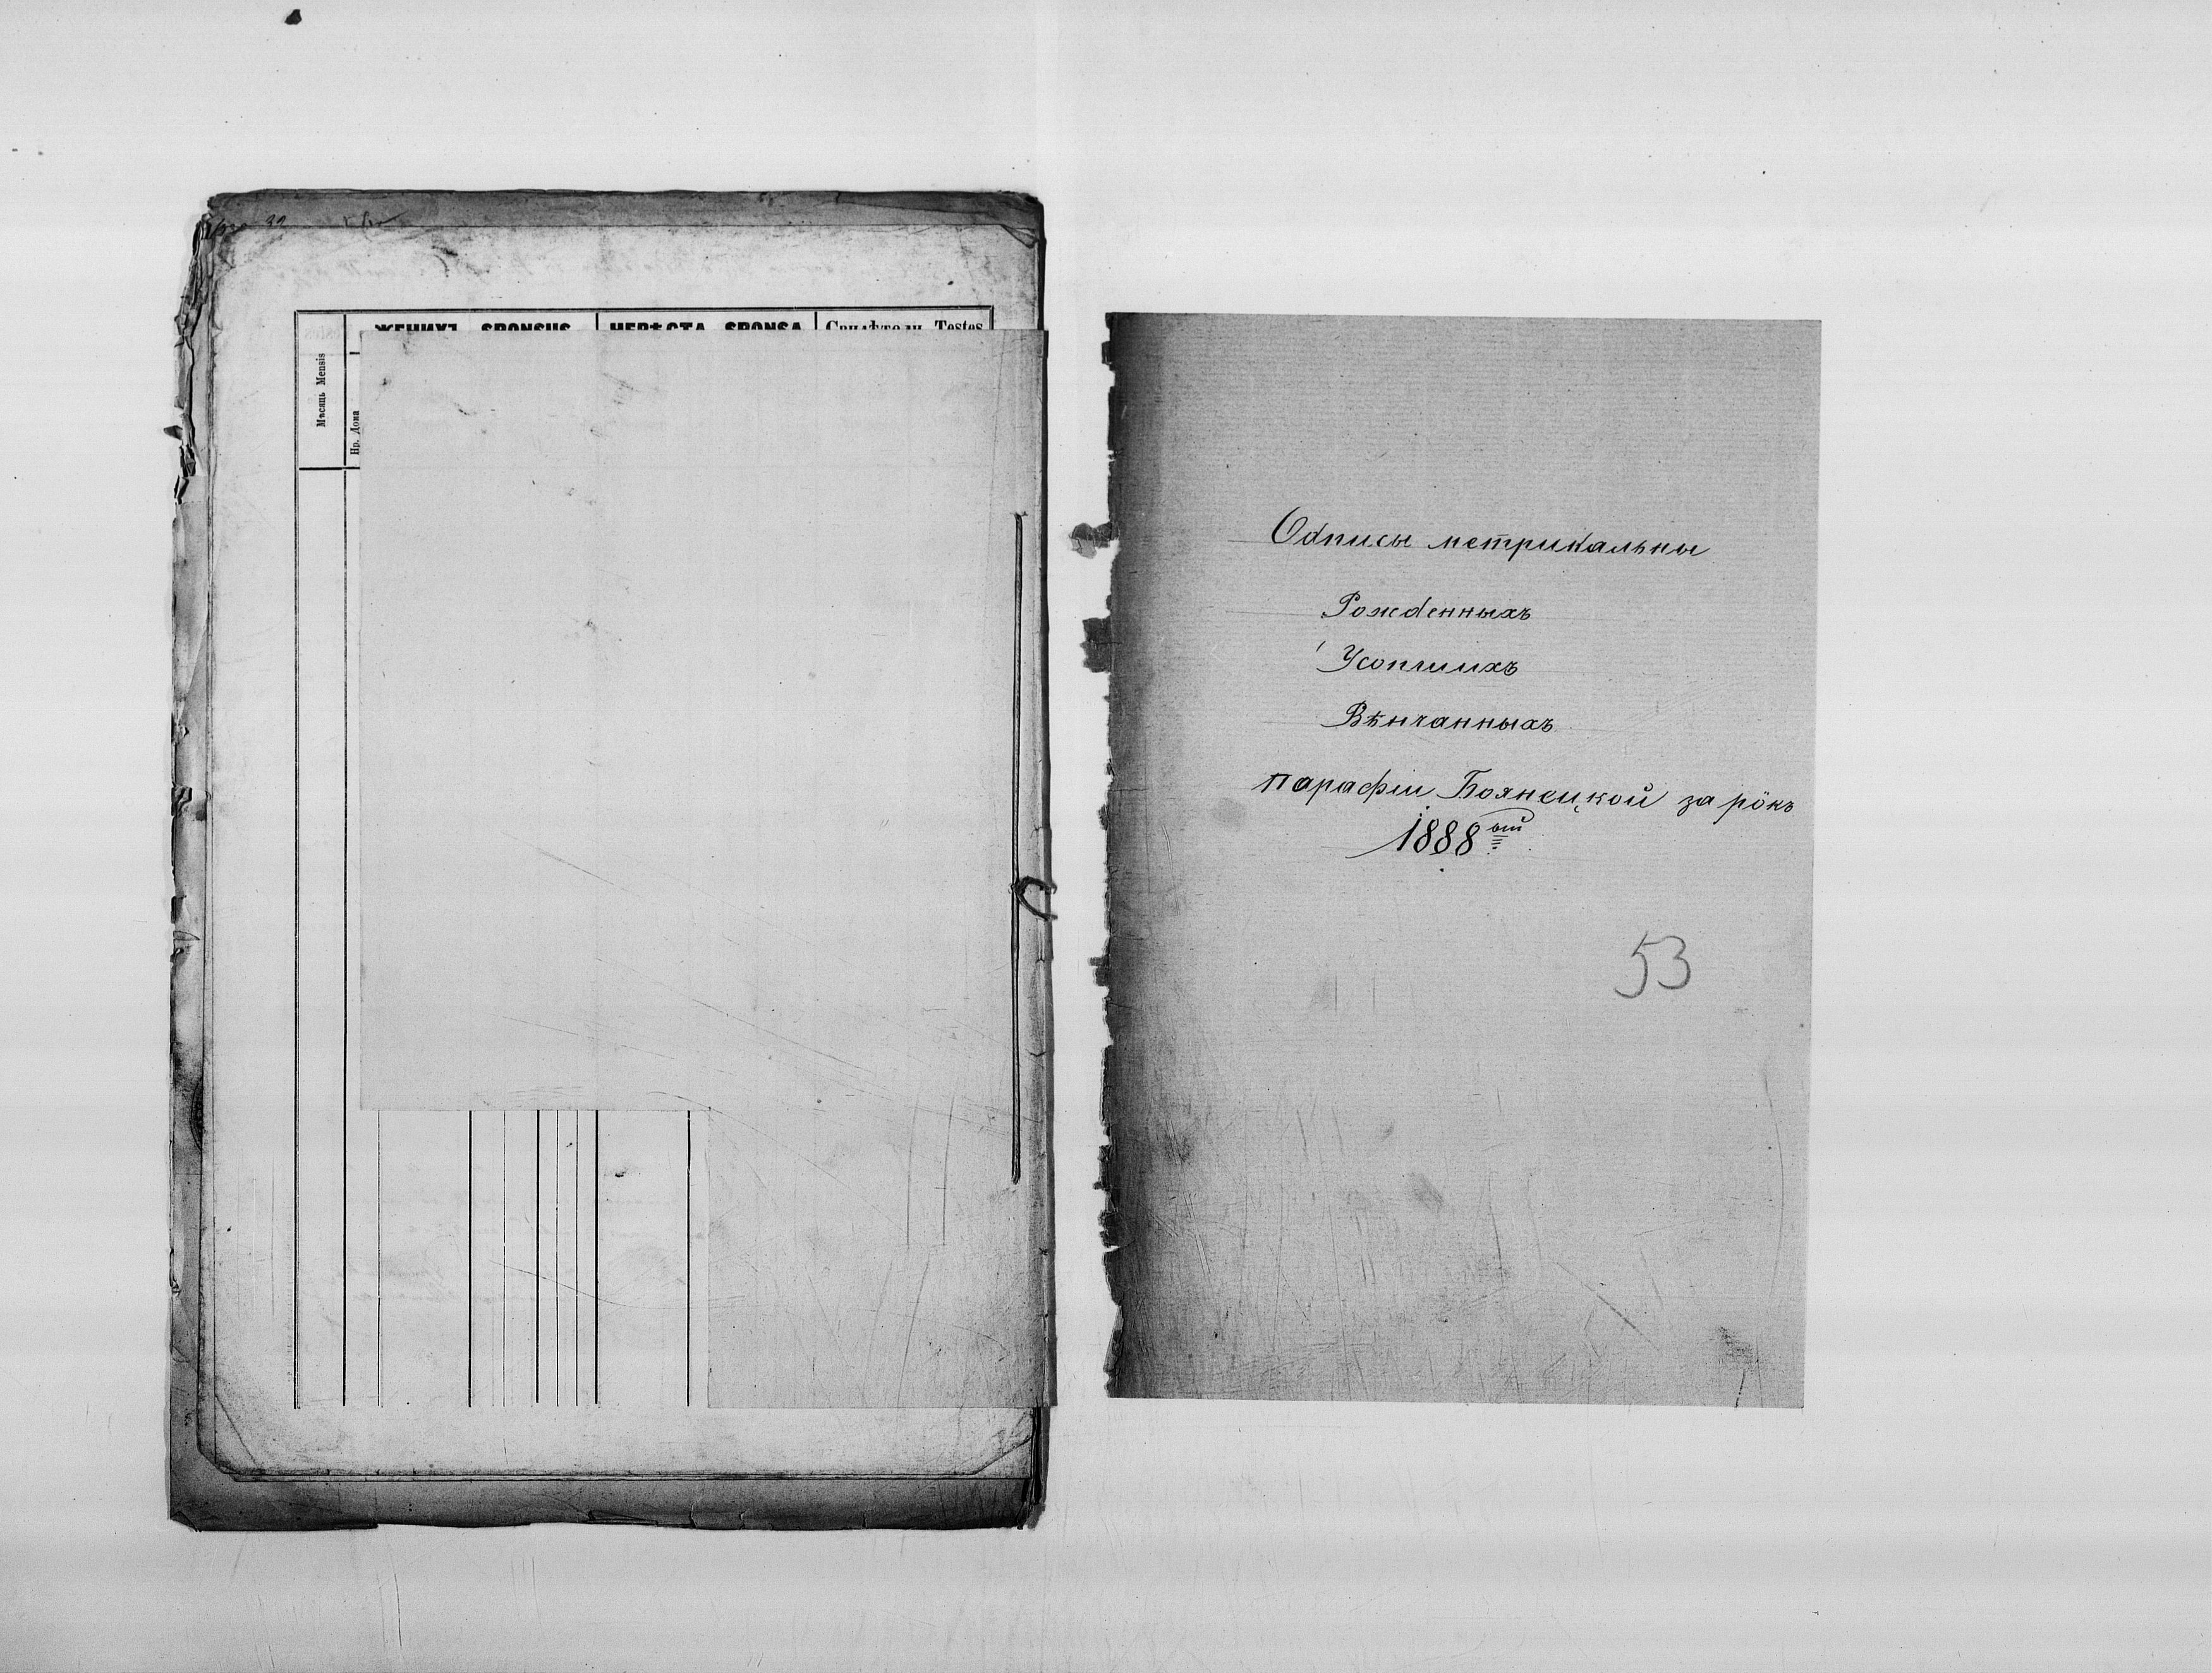 ЖЕНИХЪ SPONSUS
НЕВѢСТА SPONSA
Свидѣтели Testes
Мѣсяць Mensis
Нр. Дома
Одписы метрикальны
Рожденныхъ
Усопшихъ
Вѣнчанныхъ
парафіи Боянецкой за рôкъ
1888ый
53